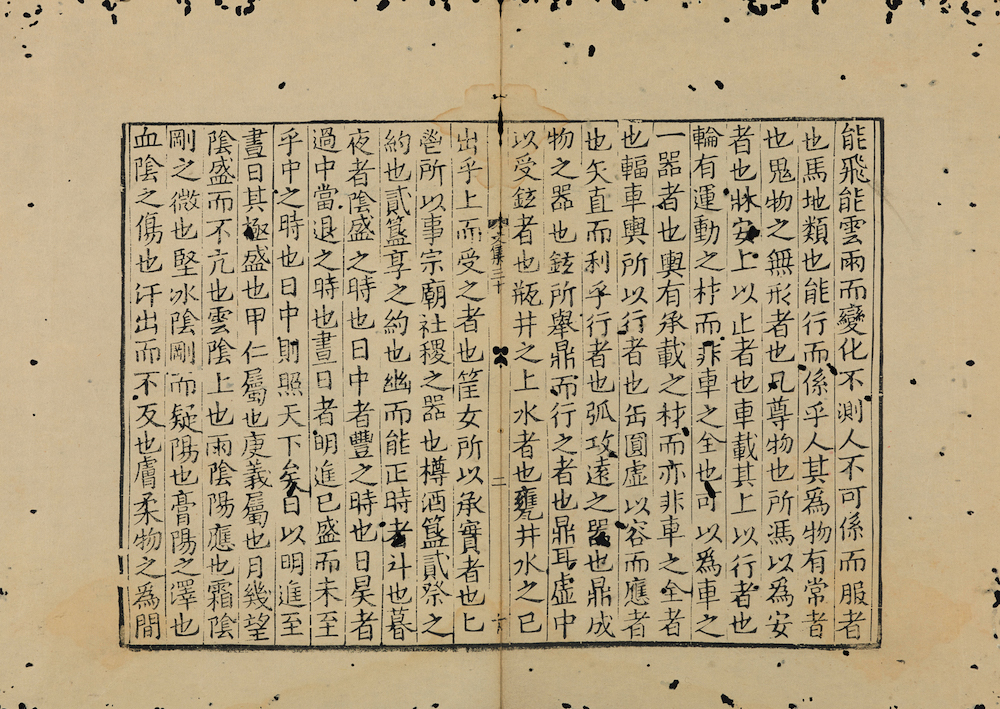 能飛能雲雨而變化不測人不可係而服者
也馬地類也能行而係乎人其為物有常者
也鬼物之無形者也凡尊物也所馮以為安
者也牀安上以止者也車載其上以行者也
輪有運動之材而非車之全也可以為車之
一器者也輿有承載之材而亦非車之全者
也輻車輿所以行者也缶圓虛以容而應者
也矢直而利乎行者也弧攻遠之器也鼎成
物之器也鉉所舉鼎而行之者也鼎耳虛中
以受鉉者也瓶井之上水者也甕井水之已
文集三十
二
出乎上而受之者也筐女所以承實者也匕
鬯所以事宗廟社稷之器也樽酒簋貳祭之
約也貳簋享之約也幽而能正時者斗也暮
夜者陰盛之時也日中者豐之時也日昊者
過中當退之時也晝日者明進已盛而未至
乎中之時也日中則照天下矣日以明進至
晝日其極盛也甲仁屬也庚義屬也月幾望
陰盛而不亢也雲陰上也雨陰陽應也霜陰
剛之微也堅冰陰剛而疑陽也膏陽之澤也
血陰之傷也汗出而不反也膚柔物之為間